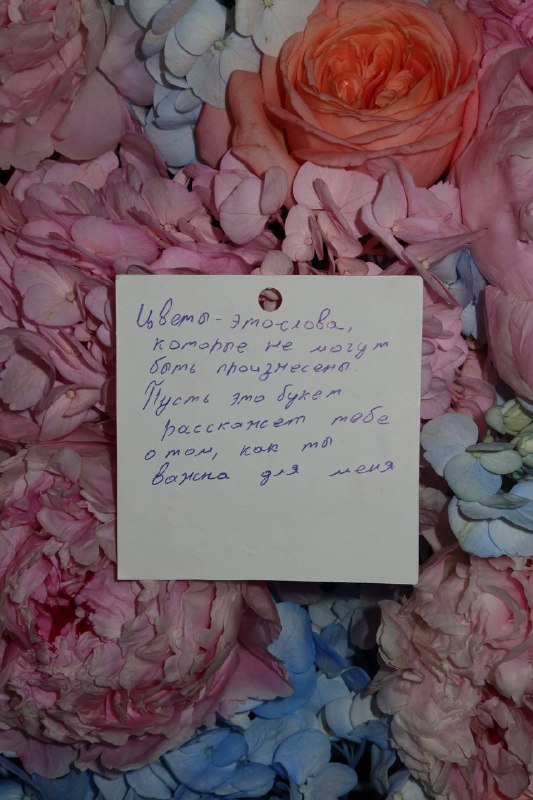 Цветы - это слова,
которые не могут
быть произнесены
Пусть это букет
расскажет тебе
о том, как ты
важна для меня